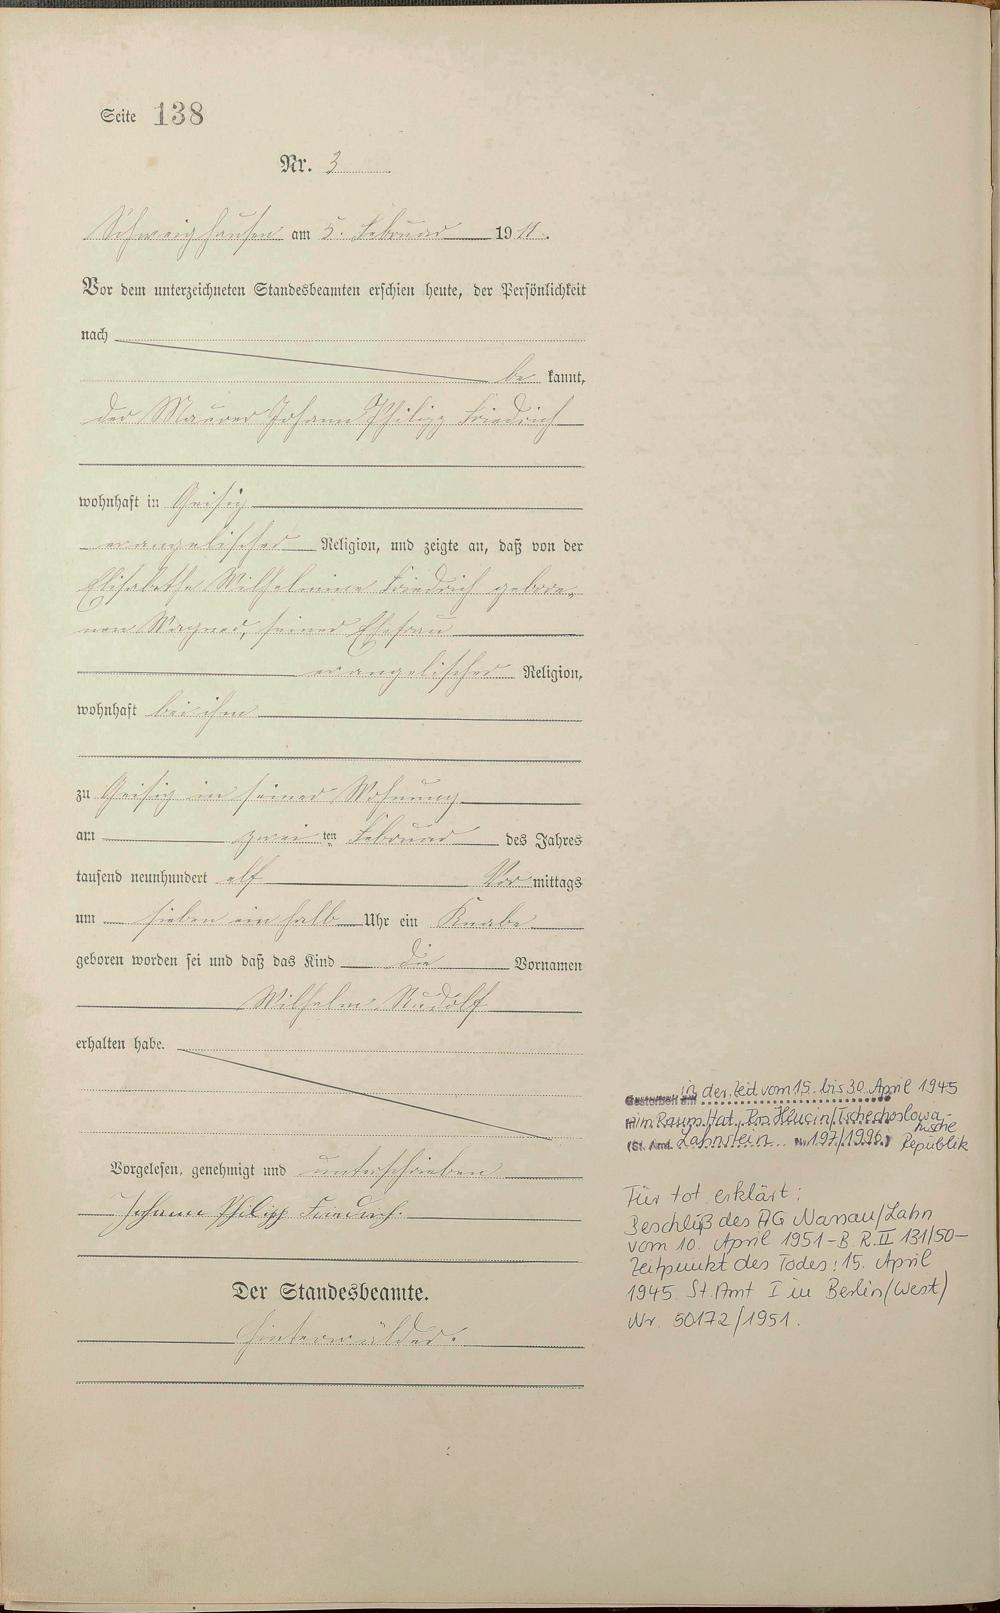 Seite 138
Nr. 3
Schweighausen am 5. Februar 1911.
Vor dem unterzeichneten Standesbeamten erschien heute, der Persönlichkeit
nach
be kannt,
der Maurer Johann Philipp Friedrich
wohnhaft in Geisig
evangelischer Religion, und zeigte an, daß von der
Elisabethe Wilhelmine Friedrich gebore-
nen Wagner, seiner Ehefrau
evangelischer Religion,
wohnhaft bei ihm
zu Geisig in seiner Wohnung
am zwei ten Februar des Jahres
tausend neunhundert elf Vor mittags
um sieben ein halb Uhr ein Knabe
geboren worden sei und daß das Kind die Vornamen
Wilhelm Rudolf
erhalten habe.
Vorgelesen, genehmigt und unterschrieben
Johann Philipp Friedrich.
Der Standesbeamte.
Hinterwälder.
Gestorben am in der Zeit vom 15. bis 30. April 1945
im Raum Hat, Hlucin/Tschechoslowa-
kische
(St. Amt. Lahnstein Nr. 197/1996) Republik
Für tot erklärt:
Beschluß des AG Nassau/Lahn
vom 10. April 1951 - B R. II 131/50 -
Zeitpunkt des Todes: 15. April
1945. St. Amt I in Berlin (West)
Nr. 50172/1951.